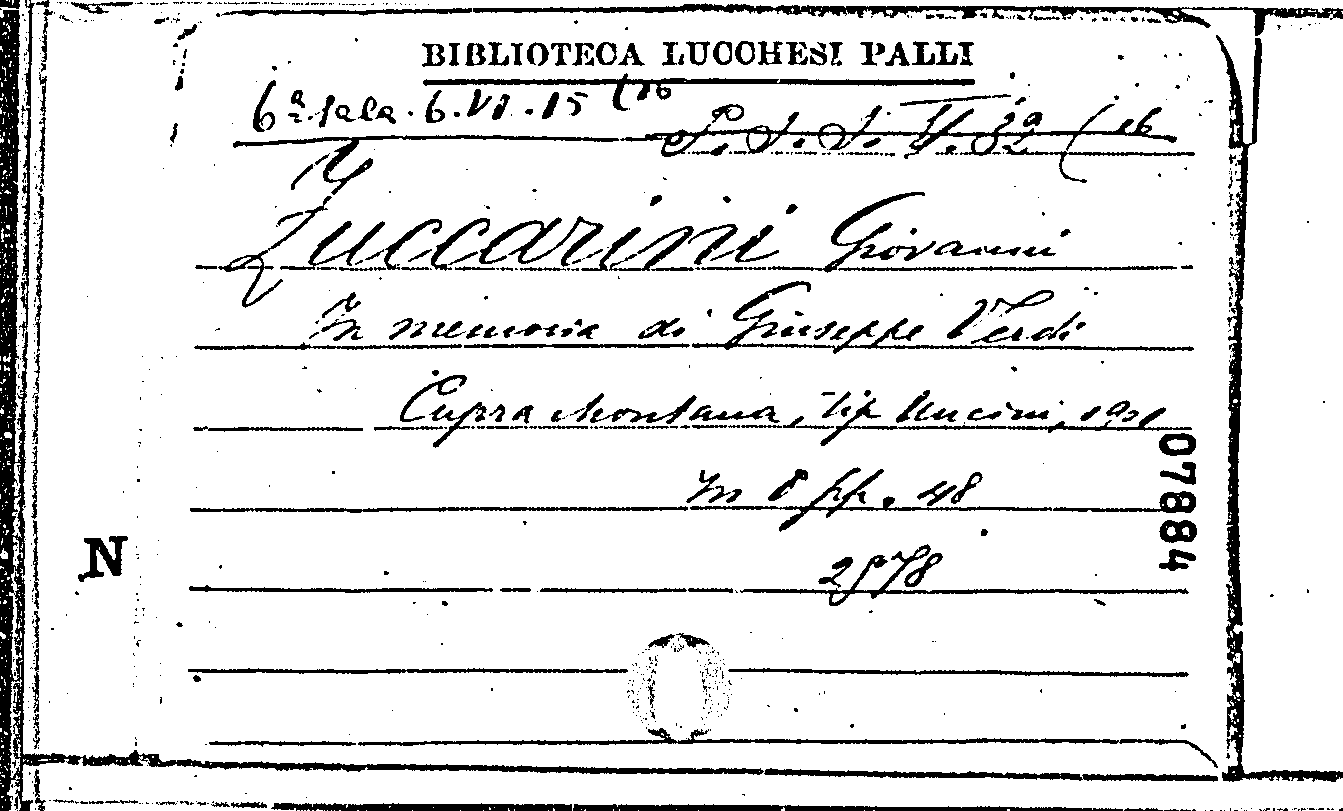 BIBLIOTECA LUCCHESI PALLI
6ª Sala. 6. VI. 15 (16
Zuccarini Giovanni
In memoria di Giuseppe Verdi
Cupra Montana, Tip Uncini, 1901
In 8 pp. 48
2578
07884
N